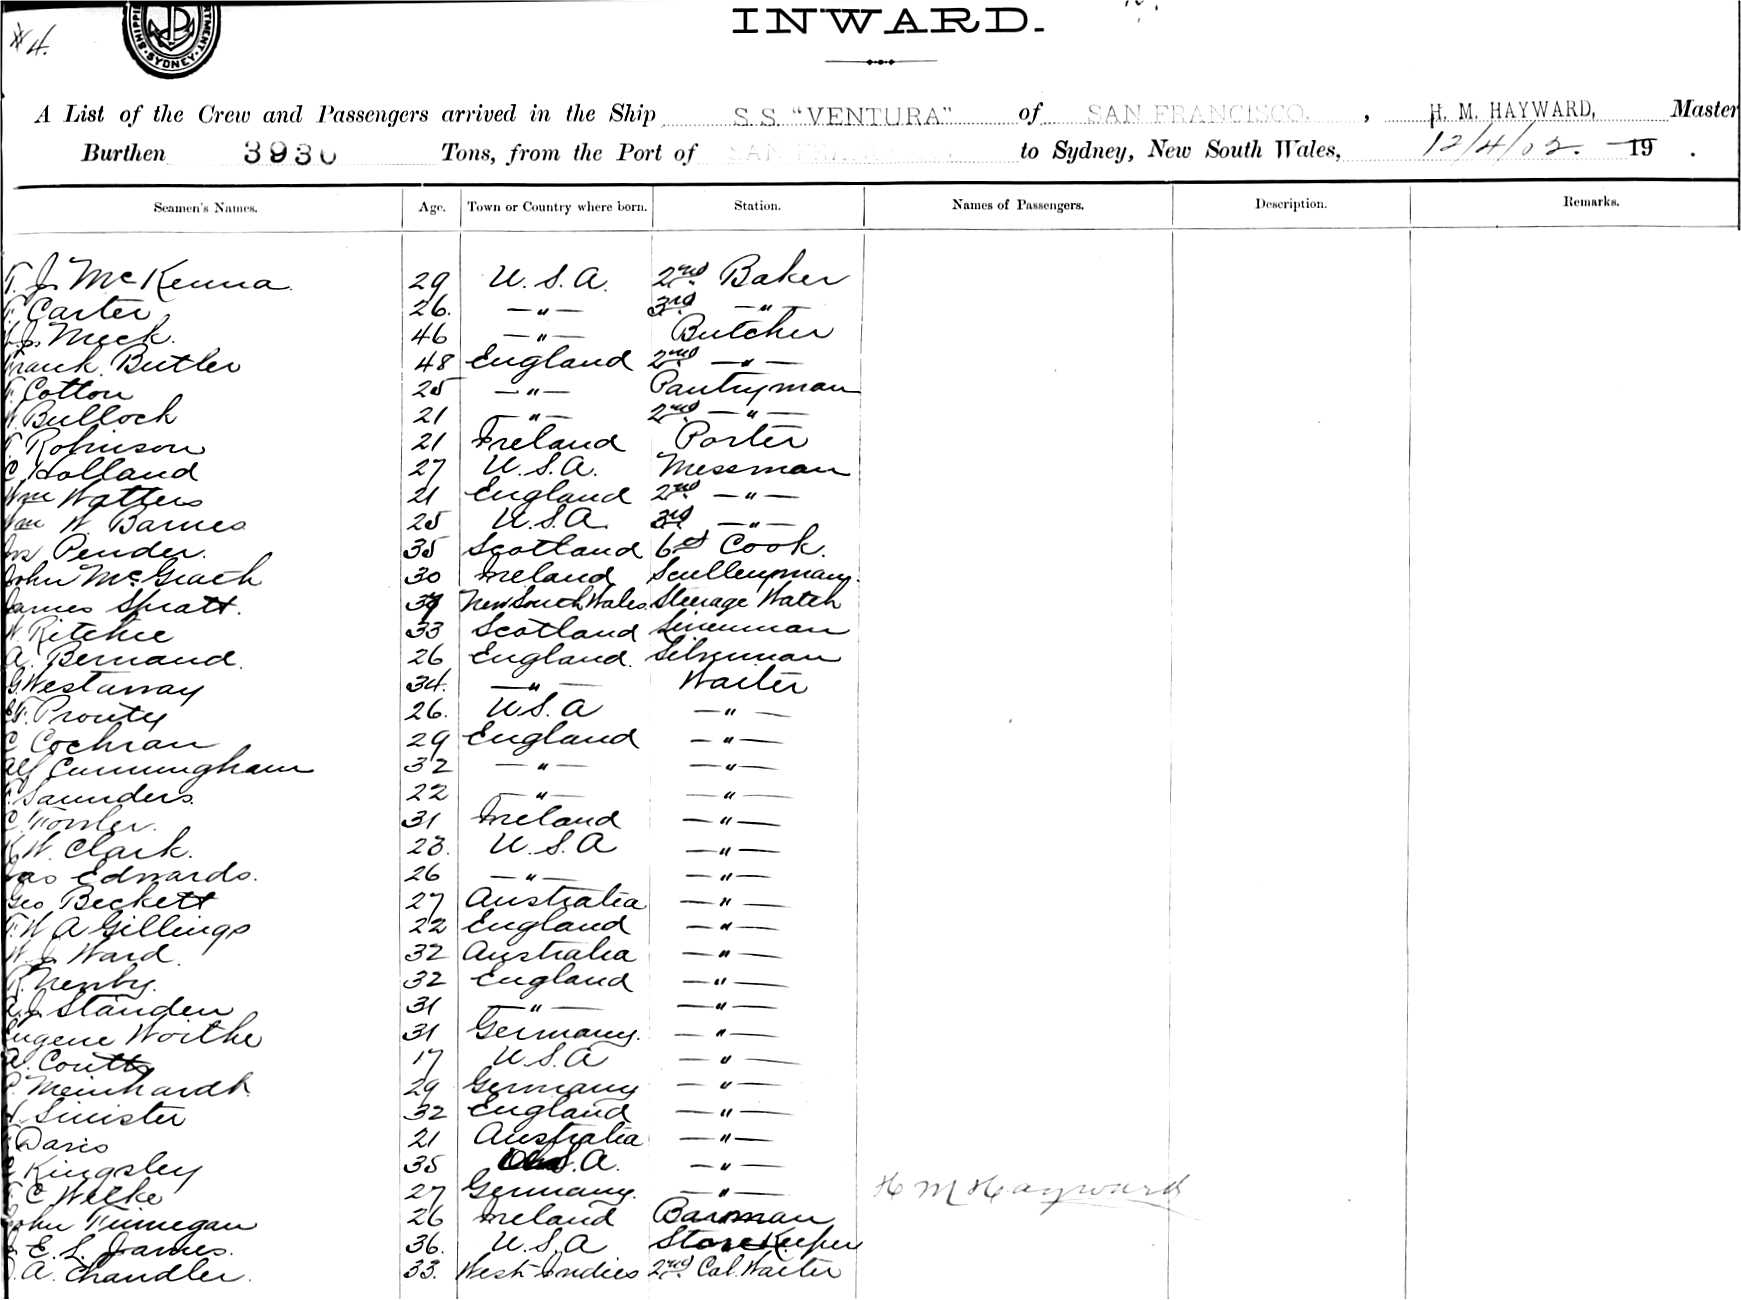 4.
SYDNEY
INWARD.
A List of the Crew and Passengers arrived in the Ship S.S. "VENTURA" of SAN FRANCISCO. , H. M. HAYWARD, Master
Burthen 3930 Tons, from the Port of to Sydney, New South Wales, 12/4/02. 19 .
Seamen's Names. Age. Town or Country where born. Station. Names of Passengers. Description. Remarks.
T. J. McKenna 29 U.S.A. 2nd Baker
Carter 26. —"— 3rd —"—
Meek. 46 —"— Butcher
Frank Butler 48 England 2nd —"—
Cotton 25 —"— Pantryman
Bullock 21 —"— 2nd —"—
Robinson 21 Ireland Porter
C Holland 27 U.S.A. Messman
Wm Watters 21 England 2nd —"—
Wm W. Barnes 25 U.S.A. 3rd —"—
Jos Pender. 35 Scotland 6th Cook.
John McGrath 30 Ireland Sculleryman.
James Spratt. New South Wales. Steerage Watch
W. Ritchie 33 Scotland Linenman
A. Bernand. 26 England. Silverman
G. Westaway 34. —"— Waiter
Prouty 26. U.S.A —"—
C Cochran 29 England —"—
Alf Cunningham 32 —"— —"—
Saunders. 22 —"— —"—
C Fowler. 31 Ireland —"—
W. Clark. 23. U.S.A —"—
Jas Edwards. 26 —"— —"—
Geo Beckett 27 Australia —"—
T. W A Gillings 22 England —"—
W. J. Ward. 32 Australia —"—
R. Newby. 32 England —"—
A. J. Standen 31 —"— —"—
Eugene Woithe 31 Germany. —"—
A. Coutts 17 U.S.A —"—
Meinhardt 29 Germany —"—
Sinister 32 England —"—
Davis 21 Australia —"—
Kingsley 35 U.S.A. —"—
C Welke 27 Germany. —"— H M Hayward
John Finnegan 26 Ireland Barman
E. L. James. 36. U.S.A Storekeeper
A. Chandler. 33. West Indies 2nd Cal. Waiter